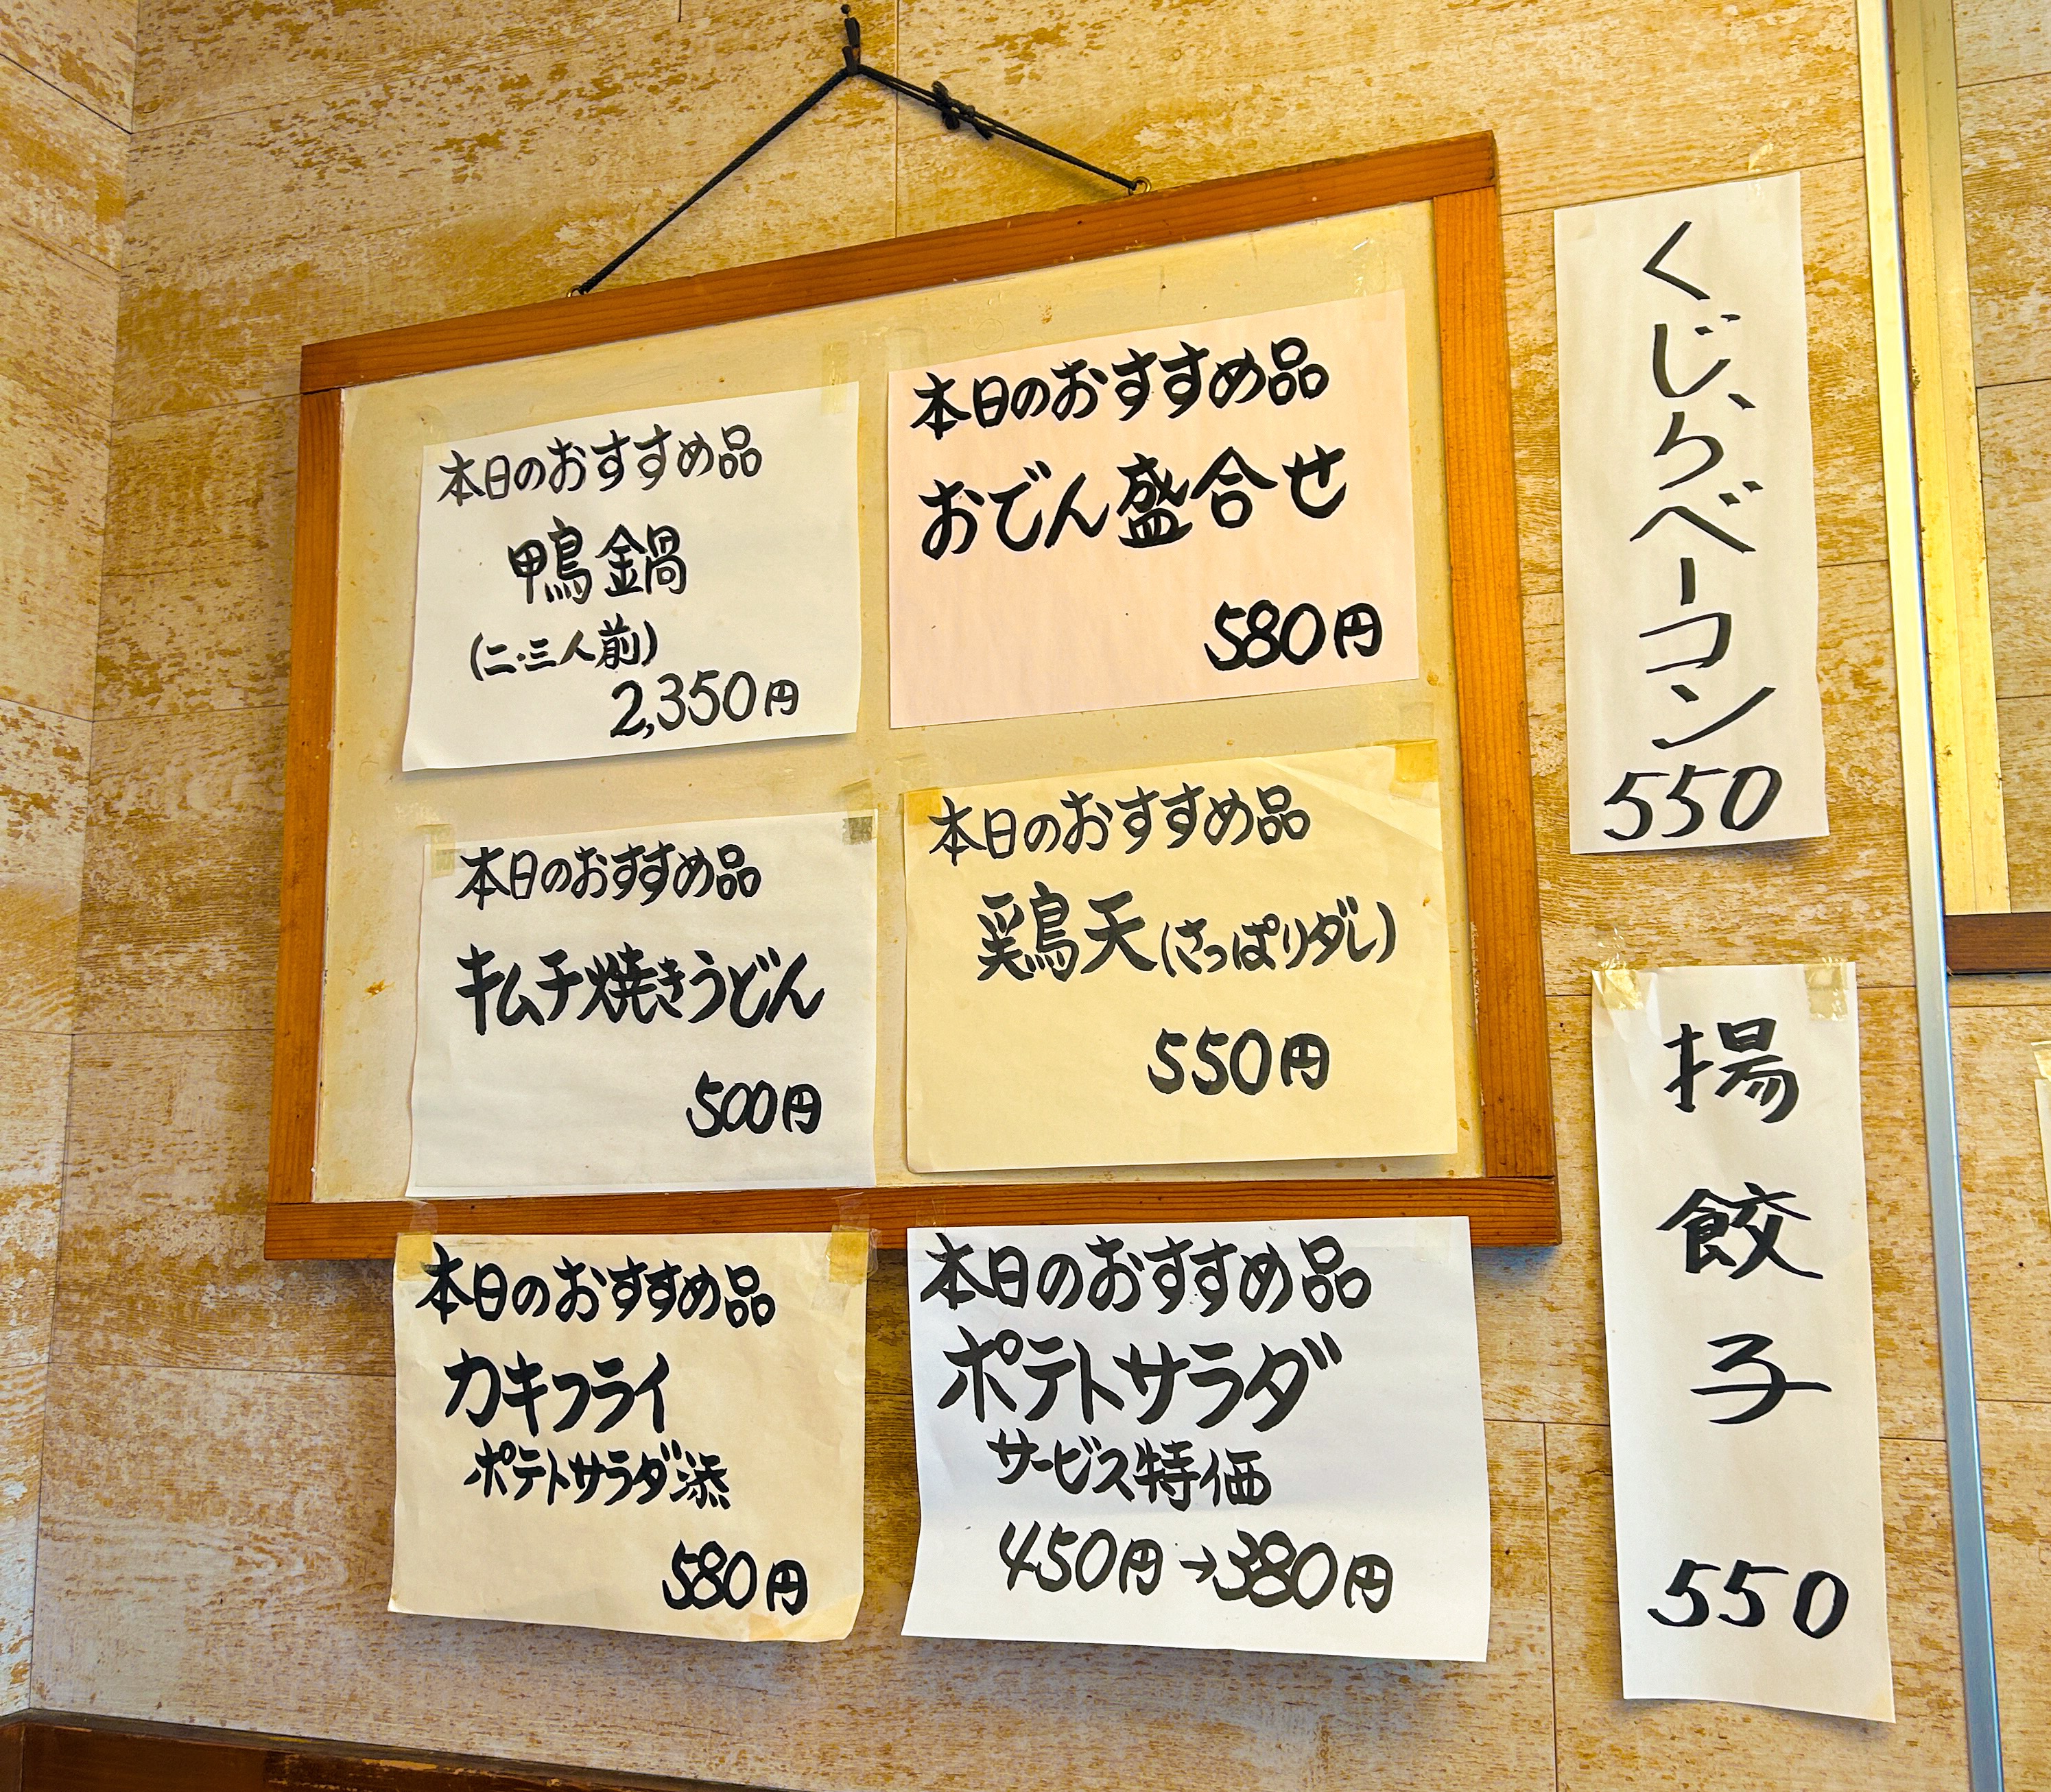 本日のおすすめ品
鴨鍋
(二・三人前)
2,350円
本日のおすすめ品
おでん盛合せ
580円
本日のおすすめ品
キムチ焼きうどん
500円
本日のおすすめ品
鶏天(さっぱりダし)
550円
本日のおすすめ品
カキフライ
ポテトサラダ添
580円
本日のおすすめ品
ポテトサラダ
サービス特価
450円→380円
くじらベーコン
550
揚餃子
550